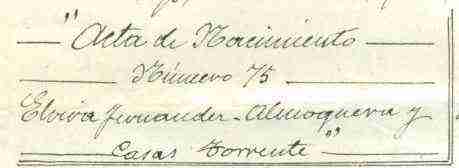 "Acta de Nacimiento
Número 75
Elvira Fernandez-Almoguera y
Casas Torrente"